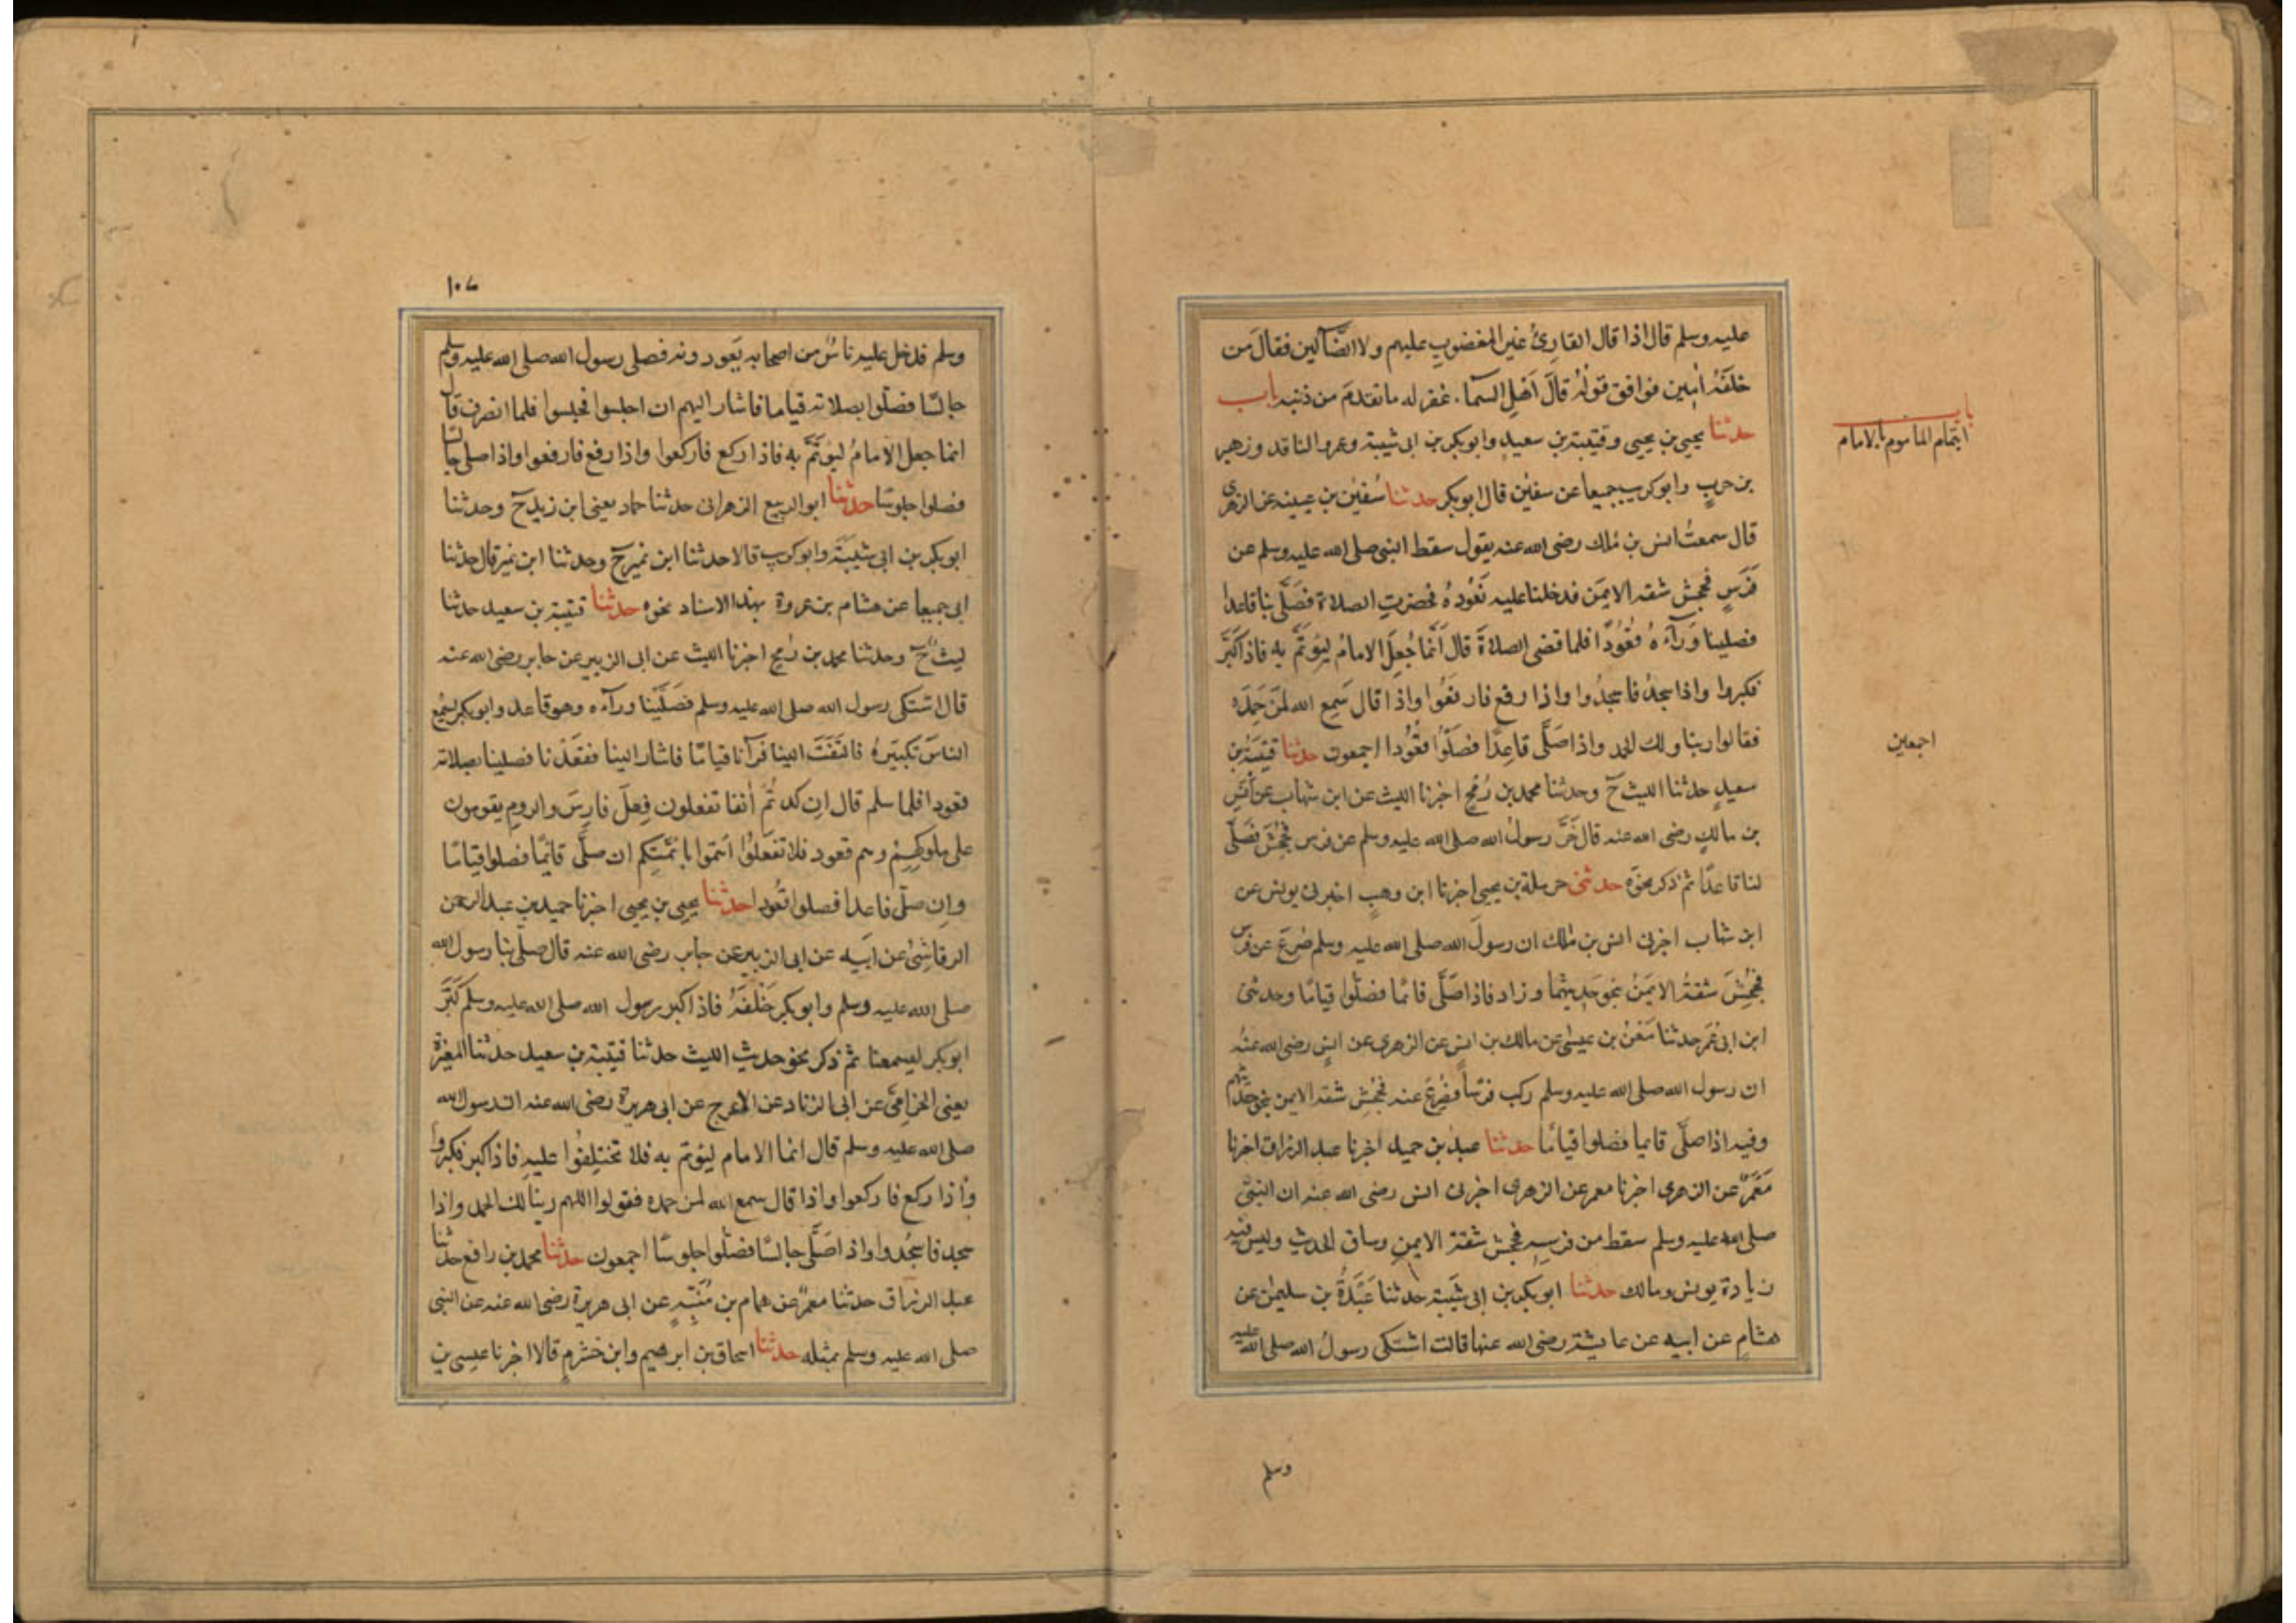 عليه وسلم قال اذا قال القارئ غير المغضوب عليهم ولا الضالين فقال من
خلفه امين فوافق قوله قال اهل السماء غفر له ما تقدم من ذنبه باب
باب
ايتمام المأموم بالامام
حدثنا يحيى بن يحيى وقتيبة بن سعيد وابو بكر بن ابى شيبة وعمرو الناقد وزهير
بن حرب وابو كريب جميعا عن سفين قال ابو بكر حدثنا سفين بن عيينه عن الزهرى
قال سمعت انس بن ملك رضى الله عنه يقول سقط النبى صلى الله عليه وسلم عن
فرس فجحش شقه الايمن فدخلنا عليه نعوده فحضرت الصلاة فصلى بنا قاعدا
فصلينا ورآءه قعودا فلما قضى الصلاة قال انما جعل الامام ليؤتم به فاذا كبر
فكبروا واذا سجد فاسجدوا واذا رفع فارفعوا واذا قال سمع الله لمن حمده
فقالوا ربنا ولك الحمد واذا صلى قاعدا فصلوا قعودا اجمعون حدثنا قتيبة بن
اجمعين
سعيد حدثنا الليث ح وحدثنا محمد بن رمح اخبرنا الليث عن ابن شهاب عن انس
بن مالك رضى الله عنه قال خر رسول الله صلى الله عليه وسلم عن فرس فجحش فصلى
لنا قاعدا ثم ذكر نحوه حدثنى حرملة بن يحيى اخبرنا ابن وهب اخبرنى يونس عن
ابن شهاب اخبرنى انس بن ملك ان رسول الله صلى الله عليه وسلم صرع عن فرس
فجحش شقه الايمن بنحو حديثهما وزاد فاذا صلى قائما فصلوا قياما وحدثنى
ابن ابى عمر حدثنا معن بن عيسى عن مالك بن انس عن الزهرى عن انس رضى الله عنه
ان رسول الله صلى الله عليه وسلم ركب فرسا فصرع عنه فجحش شقه الايمن بنحو حديثهم
وفيه اذا صلى قايما فصلوا قياما حدثنا عبد بن حميد اخبرنا عبد الرزاق اخبرنا
معمر عن الزهرى اخبرنا معمر عن الزهرى اخبرنى انس رضى الله عنه ان النبى
صلى الله عليه وسلم سقط من فرسه فجحش شقه الايمن وساق الحديث وليس فيه
زيادة يونس ومالك حدثنا ابو بكر بن ابى شيبة حدثنا عبدة بن سليمن عن
هشام عن ابيه عن عايشة رضى الله عنها قالت اشتكى رسول الله صلى الله عليه
وسلم
١٠٧
وسلم فدخل عليه ناس من اصحابه يعودونه فصلى رسول الله صلى الله عليه وسلم
جالسا فصلوا بصلاته قياما فاشار اليهم ان اجلسوا فجلسوا فلما انصرف قال
انما جعل الامام ليؤتم به فاذا ركع فاركعوا واذا رفع فارفعوا واذا صلى جالسا
فصلوا جلوسا حدثنا ابو الربيع الزهرانى حدثنا حماد يعنى ابن زيد ح وحدثنا
ابو بكر بن ابى شيبة وابو كريب قالا حدثنا ابن نمير ح وحدثنا ابن نمير قال حدثنا
ابى جميعا عن هشام بن عروة بهذا الاسناد نحوه حدثنا قتيبة بن سعيد حدثنا
ليث ح وحدثنا محمد بن رمح اخبرنا الليث عن ابى الزبير عن جابر رضى الله عنه
قال اشتكى رسول الله صلى الله عليه وسلم فصلينا ورآءه وهو قاعد وابو بكر يسمع
الناس تكبيره فالتفت الينا فرآنا قياما فاشار الينا فقعدنا فصلينا بصلاته
قعودا فلما سلم قال ان كدتم أنفا تفعلون فعل فارس والروم يقومون
على ملوكهم وهم قعود فلا تفعلوا ائتموا بائمتكم ان صلى قائما فصلوا قياما
وان صلى قاعدا فصلوا قعودا حدثنا يحيى بن يحيى اخبرنا حميد بن عبد الرحمن
الرقاشى عن ابيه عن ابى الزبير عن جابر رضى الله عنه قال صلى بنا رسول الله
صلى الله عليه وسلم وابو بكر خلفه فاذا كبر رسول الله صلى الله عليه وسلم كبر
ابو بكر ليسمعنا ثم ذكر نحو حديث الليث حدثنا قتيبة بن سعيد حدثنا المغيرة
يعنى الحزامى عن ابى الزناد عن الاعرج عن ابى هريرة رضى الله عنه ان رسول الله
صلى الله عليه وسلم قال انما الامام ليؤتم به فلا تختلفوا عليه فاذا كبر فكبروا
واذا ركع فاركعوا واذا قال سمع الله لمن حمده فقولوا اللهم ربنا لك الحمد واذا
سجد فاسجدوا واذا صلى جالسا فصلوا جلوسا اجمعون حدثنا محمد بن رافع حدثنا
عبد الرزاق حدثنا معمر عن همام بن منبه عن ابى هريرة رضى الله عنه عن النبى
صلى الله عليه وسلم بمثله حدثنا اسحاق بن ابرهيم وابن خشرم قالا اخبرنا عيسى بن